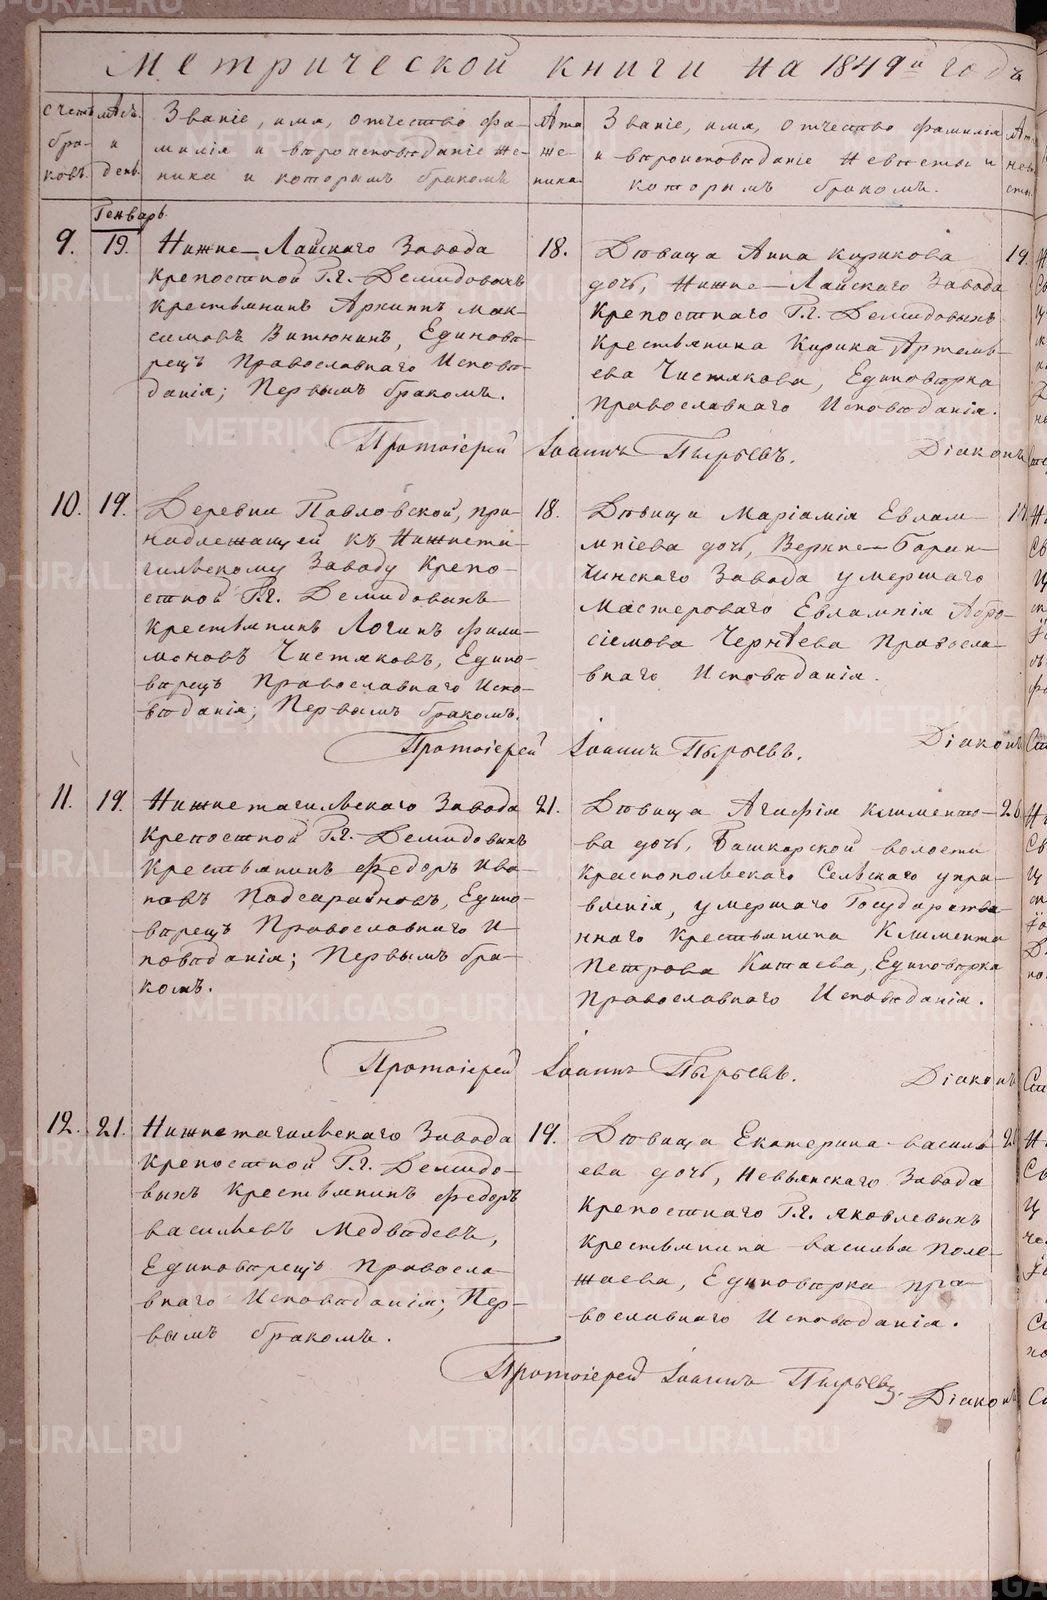 Метрической книги на 1849й годъ
Счетъ браковъ.
Мѣс. и день.
Званіе, имя, отчество фамилія и вѣроисповѣданіе жениха и которымъ бракомъ
Лѣта жениха.
Званіе, имя, отчество фамилія и вѣроисповѣданіе невѣсты и которымъ бракомъ.
Генварь.
9. 19. Нижне-Лайскаго Завода
крепостной Г.г. Демидовыхъ
крестьянинъ Архипъ Мак-
симовъ Витюнинъ, Единовѣ-
рецъ Православнаго Исповѣ-
данія; Первымъ бракомъ.
18.
Дѣвица Анна Кирикова
дочь, Нижне-Лайскаго Завода
крепостнаго Г.г. Демидовыхъ
крестьянина Кирика Артемь-
ева Чистякова, Единовѣрка
Православнаго Исповѣданія.
19.
Протоіерей Іоаннъ Пырьевъ. Діаконъ
10. 19. Деревни Павловской, при-
надлежащей къ Нижнета-
гильскому Заводу Крепо-
стной Г.г. Демидовыхъ
крестьянинъ Логинъ Фили-
моновъ Чистяковъ, Едино-
вѣрецъ Православнаго Испо-
вѣданія; Первымъ бракомъ.
18.
Дѣвица Маріамія Евлам-
піева дочь, Верхне-Баран-
чинскаго Завода умершаго
Мастероваго Евлампія Абро-
сімова Чернѣева Правосла-
внаго Исповѣданія.
Протоіерей Іоаннъ Пырьевъ. Діаконъ
11. 19. Нижнетагильскаго Завода
крепостной Г.г. Демидовыхъ
крестьянинъ Федоръ Ива-
новъ Подсарайновъ, Едино-
вѣрецъ Православнаго И-
повѣданія; Первымъ бра-
комъ.
21.
Дѣвица Агафія Клименто-
ва дочь, Башкарской волости
Краснопольскаго Сельскаго упра-
вленія, умершаго Государстве-
ннаго крестьянина Климента
Петрова Катаева, Единовѣрка
Православнаго Исповѣданія.
Протоіерей Іоаннъ Пырьевъ. Діаконъ
12. 21. Нижнетагильскаго Завода
крепостной Г.г. Демидо-
выхъ крестьянинъ Федоръ
Васильевъ Медвѣдевъ,
Единовѣрецъ Правосла-
внаго Исповѣданія; Пер-
вымъ бракомъ.
19.
Дѣвица Екатерина Василь-
ева дочь, Невьянскаго Завода
крепостнаго Г.г. Яковлевыхъ
крестьянина Василья Поле-
жаева, Единовѣрка Пра-
вославнаго Исповѣданія.
Протоіерей Іоаннъ Пырьевъ. Діаконъ
METRIKI.GASO-URAL.RU